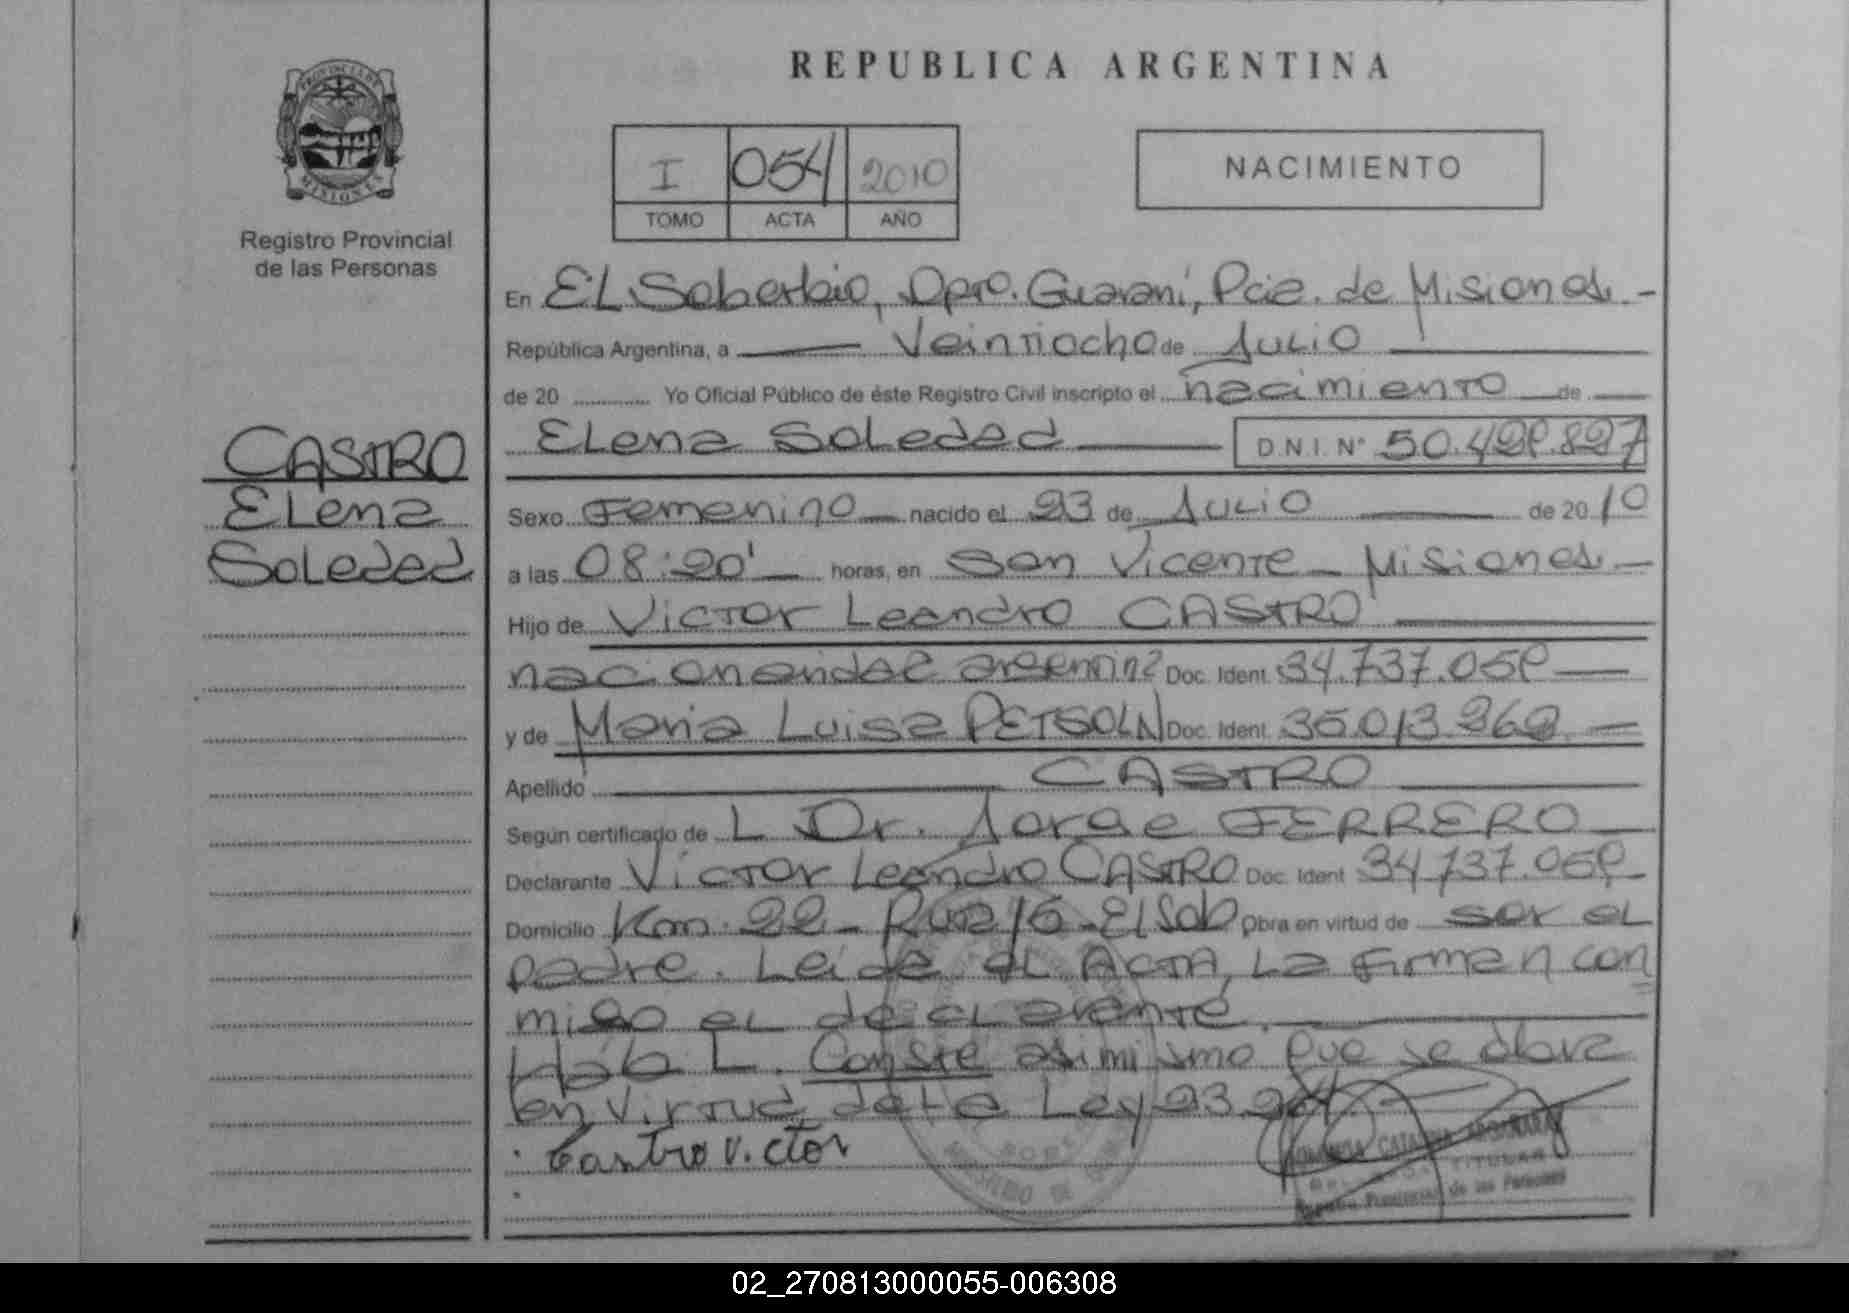 REPUBLICA ARGENTINA
PROVINCIA DE
MISIONES
Registro Provincial
de las Personas
I 054 2010
TOMO ACTA AÑO
NACIMIENTO
CASTRO
Elena
Soledad
En El Soberbio, Dpto. Guaraní, Pcia. de Misiones.-
República Argentina, a Veintiocho de Julio
de 20 Yo Oficial Público de éste Registro Civil inscripto el nacimiento de
Elena Soledad D.N.I. Nº 50.429.827
Sexo Femenino nacido el 23 de Julio de 2010
a las 08:20' horas, en San Vicente - Misiones.-
Hijo de Victor Leandro CASTRO
Doc. Ident. 34.737.059
y de Maria Luisa PETSOLN Doc. Ident. 35.013.262
Apellido CASTRO
Según certificado de L Dr. Jorge FERRERO
Declarante Victor Leandro CASTRO Doc. Ident. 34.737.059
Domicilio Km. 22 - Ruta 15 - El Sob Obra en virtud de ser el
padre. Leida el ACTA, La firman con
migo el declarante.
L. Conste asimismo que se obra
en virtud de La Ley 23.264
Castro Victor
TITULAR
Registro Provincial de las Personas
02_270813000055-006308